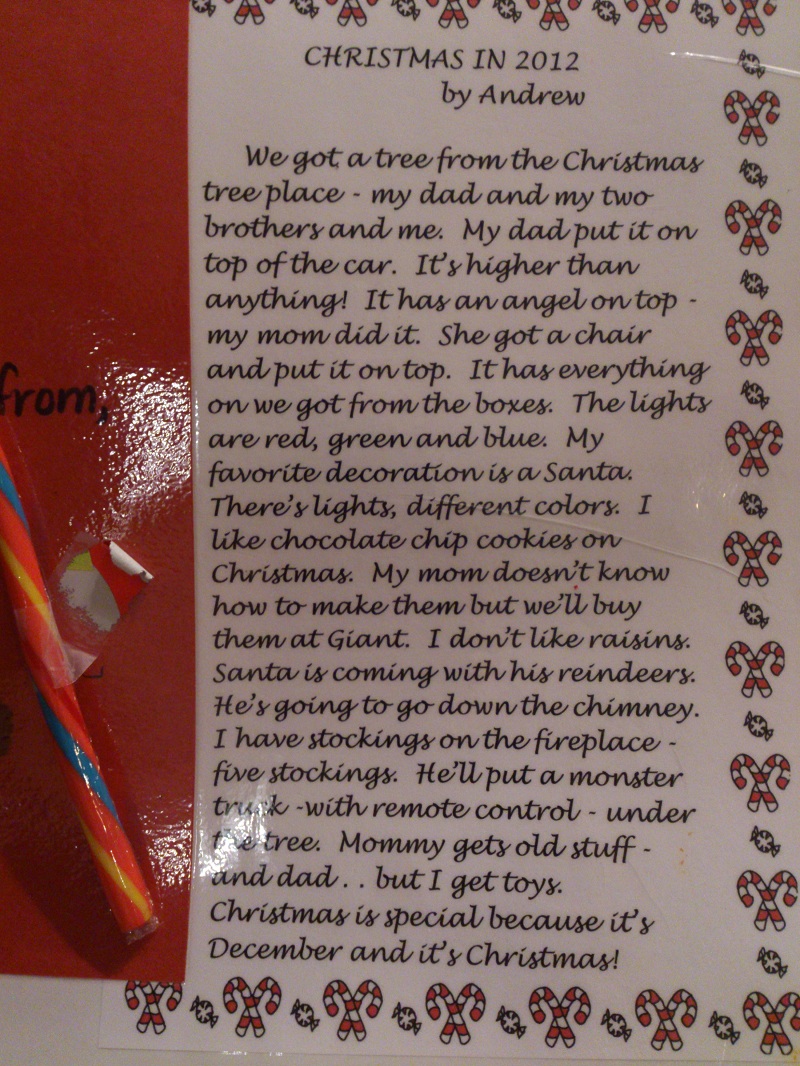 CHRISTMAS IN 2012
by Andrew
We got a tree from the Christmas
tree place - my dad and my two
brothers and me. My dad put it on
top of the car. It's higher than
anything! It has an angel on top -
my mom did it. She got a chair
and put it on top. It has everything
on we got from the boxes. The lights
are red, green and blue. My
favorite decoration is a Santa.
There's lights, different colors. I
like chocolate chip cookies on
Christmas. My mom doesn't know
how to make them but we'll buy
them at Giant. I don't like raisins.
Santa is coming with his reindeers.
He's going to go down the chimney.
I have stockings on the fireplace -
five stockings. He'll put a monster
truck -with remote control - under
the tree. Mommy gets old stuff -
and dad . . but I get toys.
Christmas is special because it's
December and it's Christmas!
from,